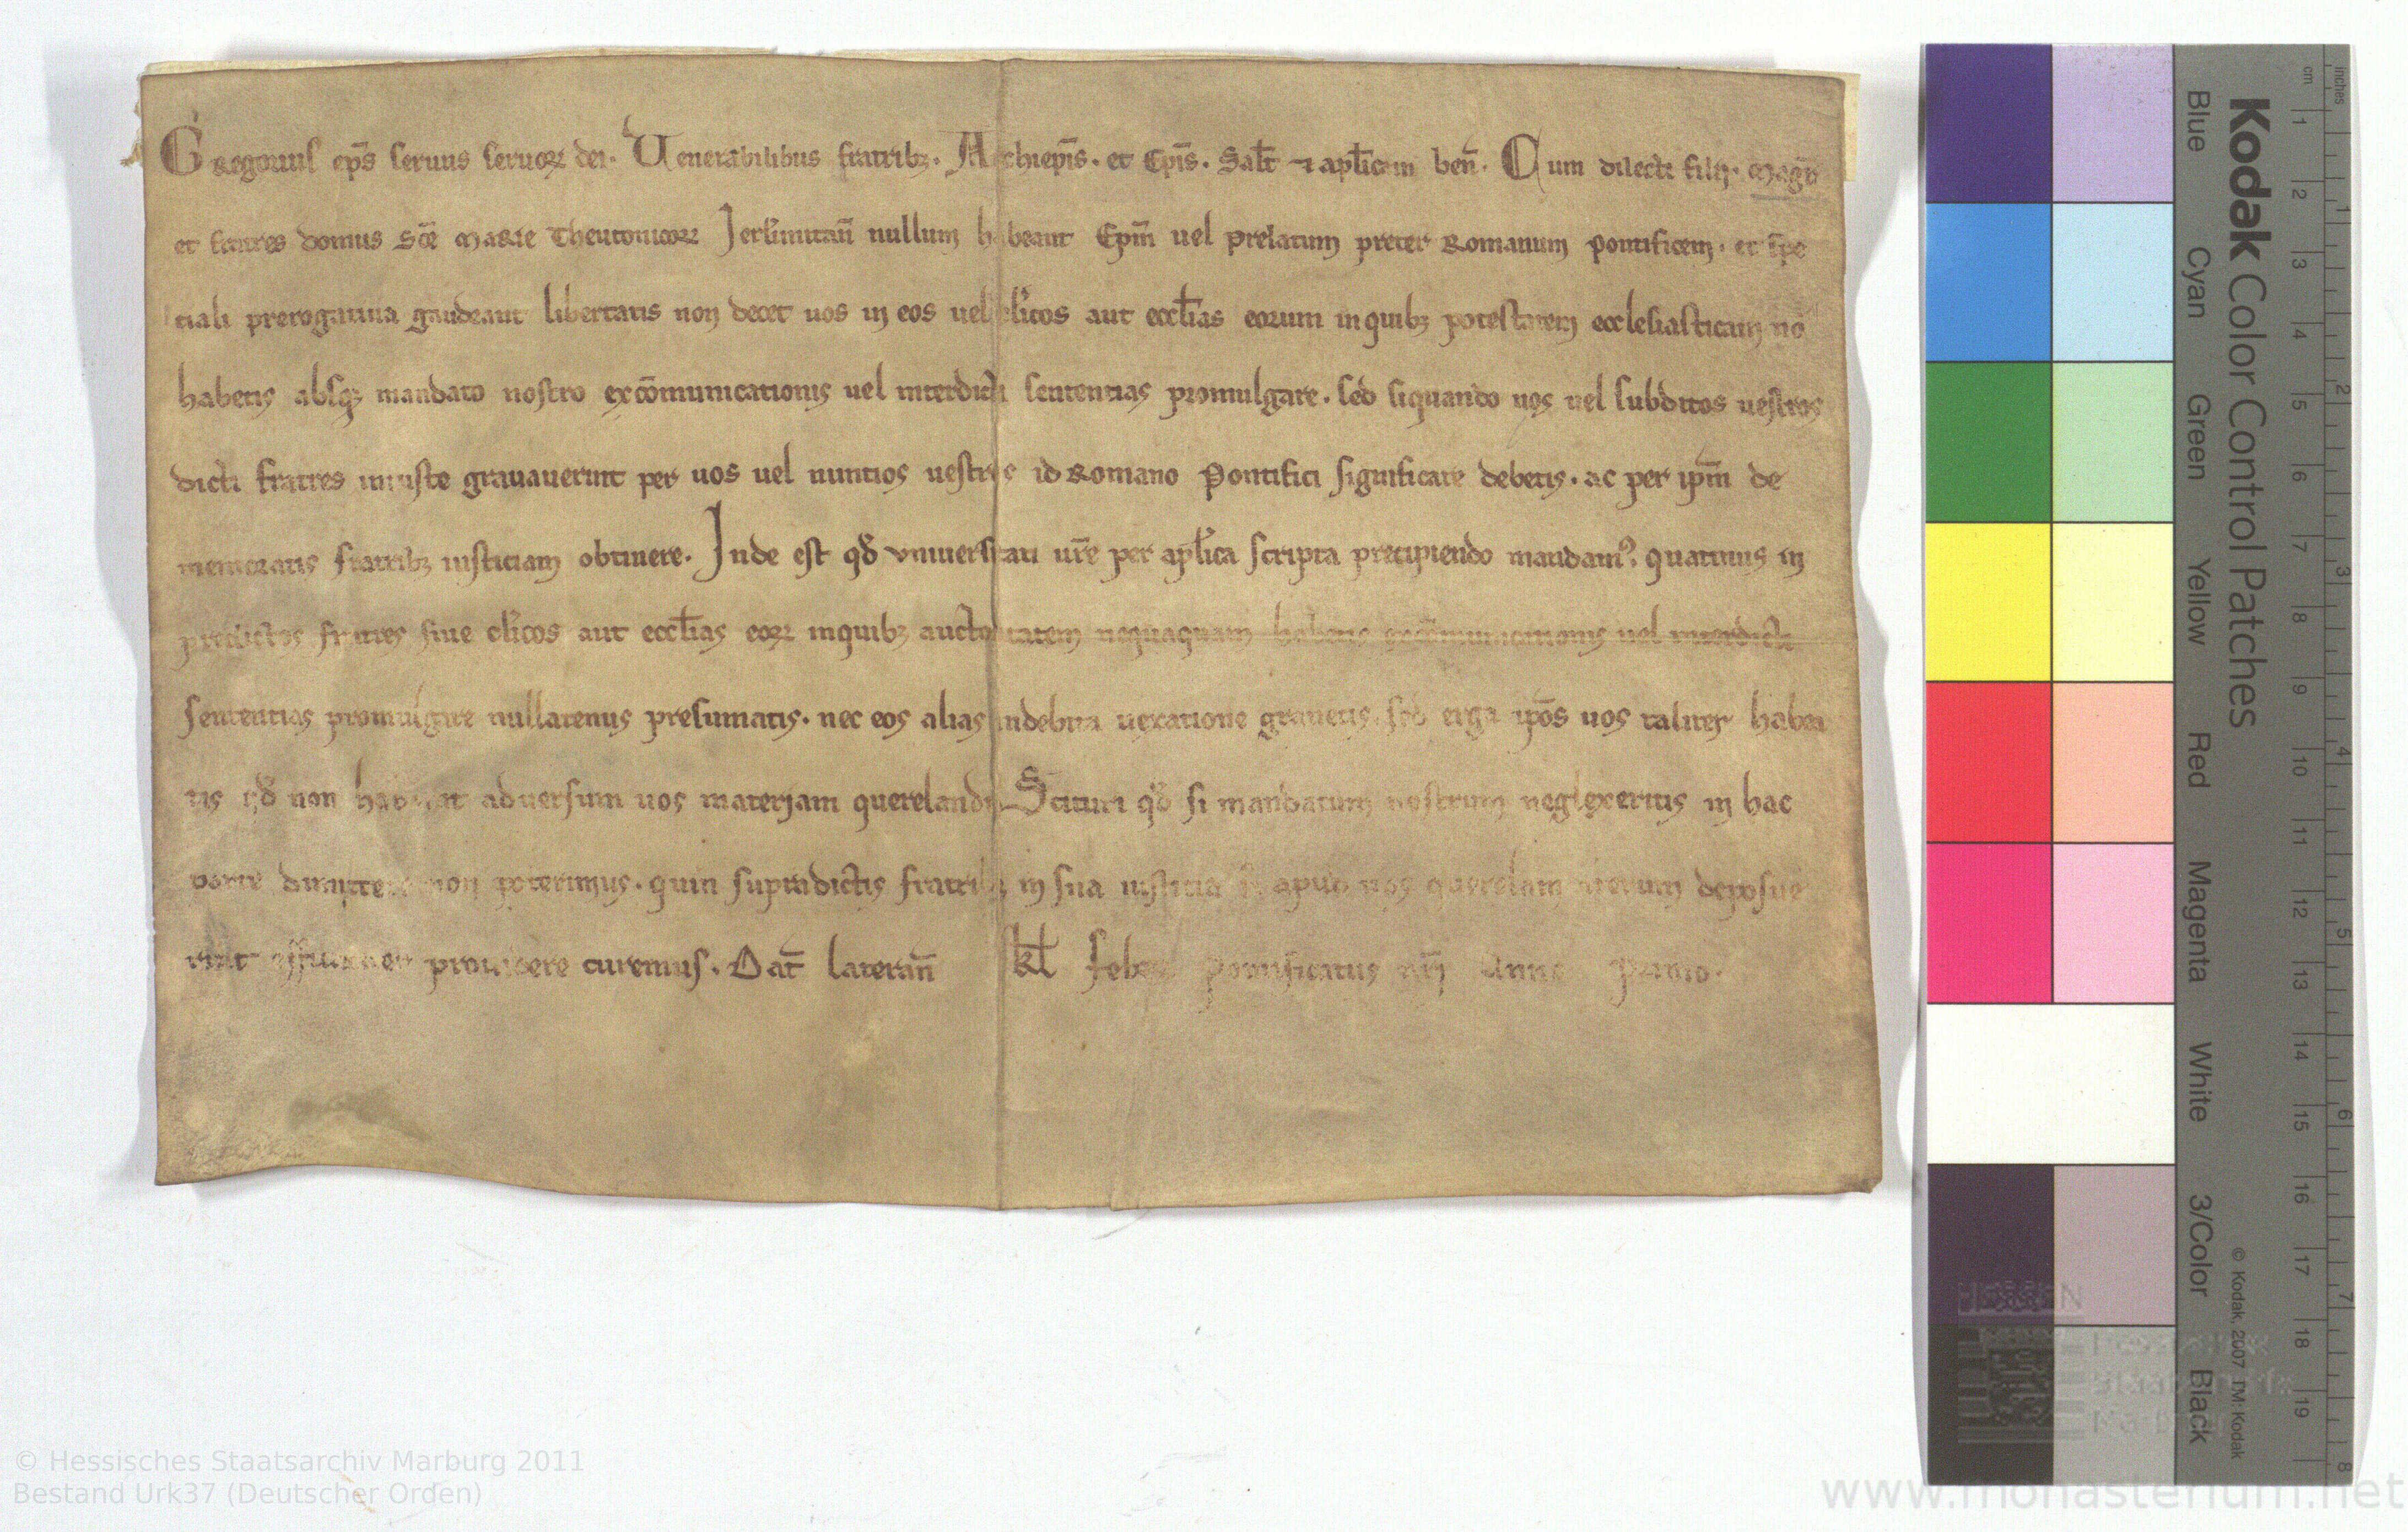 Gregorius ep̄s seruus seruoꝝ dei. Venerabilibus fratribꝫ. Archiep̄is. et Ep̄is. Sal̄t ⁊ apl̄icam ben̄. Cum dilecti filij. Magr̄
et fratres domus Sc̄e Marie Theutonicoꝝ Jerl̄imitan̄ nullum habeant Ep̄m uel prelatum preter Romanum pontificem. et spe
tiali prerogatiua gaudeant libertatis non decet uos in eos uel cl̄icos aut eccl̄ias eorum in quibꝫ potestatem ecclesiasticam nō
habetis absqꝫ mandato nostro excōmunicationis uel interdicti sententias promulgare. sed siquando uos uel subditos uestros
dicti fratres iniuste grauauerint per uos uel nuntios uestros id Romano Pontifici significare debetis. ac per ip̄m de
memoratis fratribꝫ iusticiam obtinere. Inde est qd̄ vniuersitati ur̄e per apl̄ica scripta precipiendo mandamꝰ. quatinus in
predictos fratres siue cl̄icos aut eccl̄ias eoꝝ inquibꝫ auctoritatem nequaquam habetis excōmunicationis uel interdicti
sententias promulgare nullatenus presumatis. nec eos alias indebita uexatione grauetis. sed erga ip̄os uos taliter habea
tis qd̄ non habeant aduersum uos materiam querelandi. Scituri qd̄ si mandatum nostrum neglexeritis in hac
parte dimittere non poterimus. quin supradictis fratribꝫ in sua iustitia si apud nos querelam iterum deposue
rint prouidere curemus. Dat̄ Lateran̄ kl̄ Febr pontificatus nr̄i Anno primo.
Kodak Color Control Patches
Blue Cyan Green Yellow Red Magenta White 3/Color Black
© Kodak, 2007 TM: Kodak
inches 1 2 3 4 5 6 7 8
cm 1 2 3 4 5 6 7 8 9 10 11 12 13 14 15 16 17 18 19
HESSEN
Hessisches
Staatsarchiv
Marburg
© Hessisches Staatsarchiv Marburg 2011
Bestand Urk37 (Deutscher Orden)
www.monasterium.net